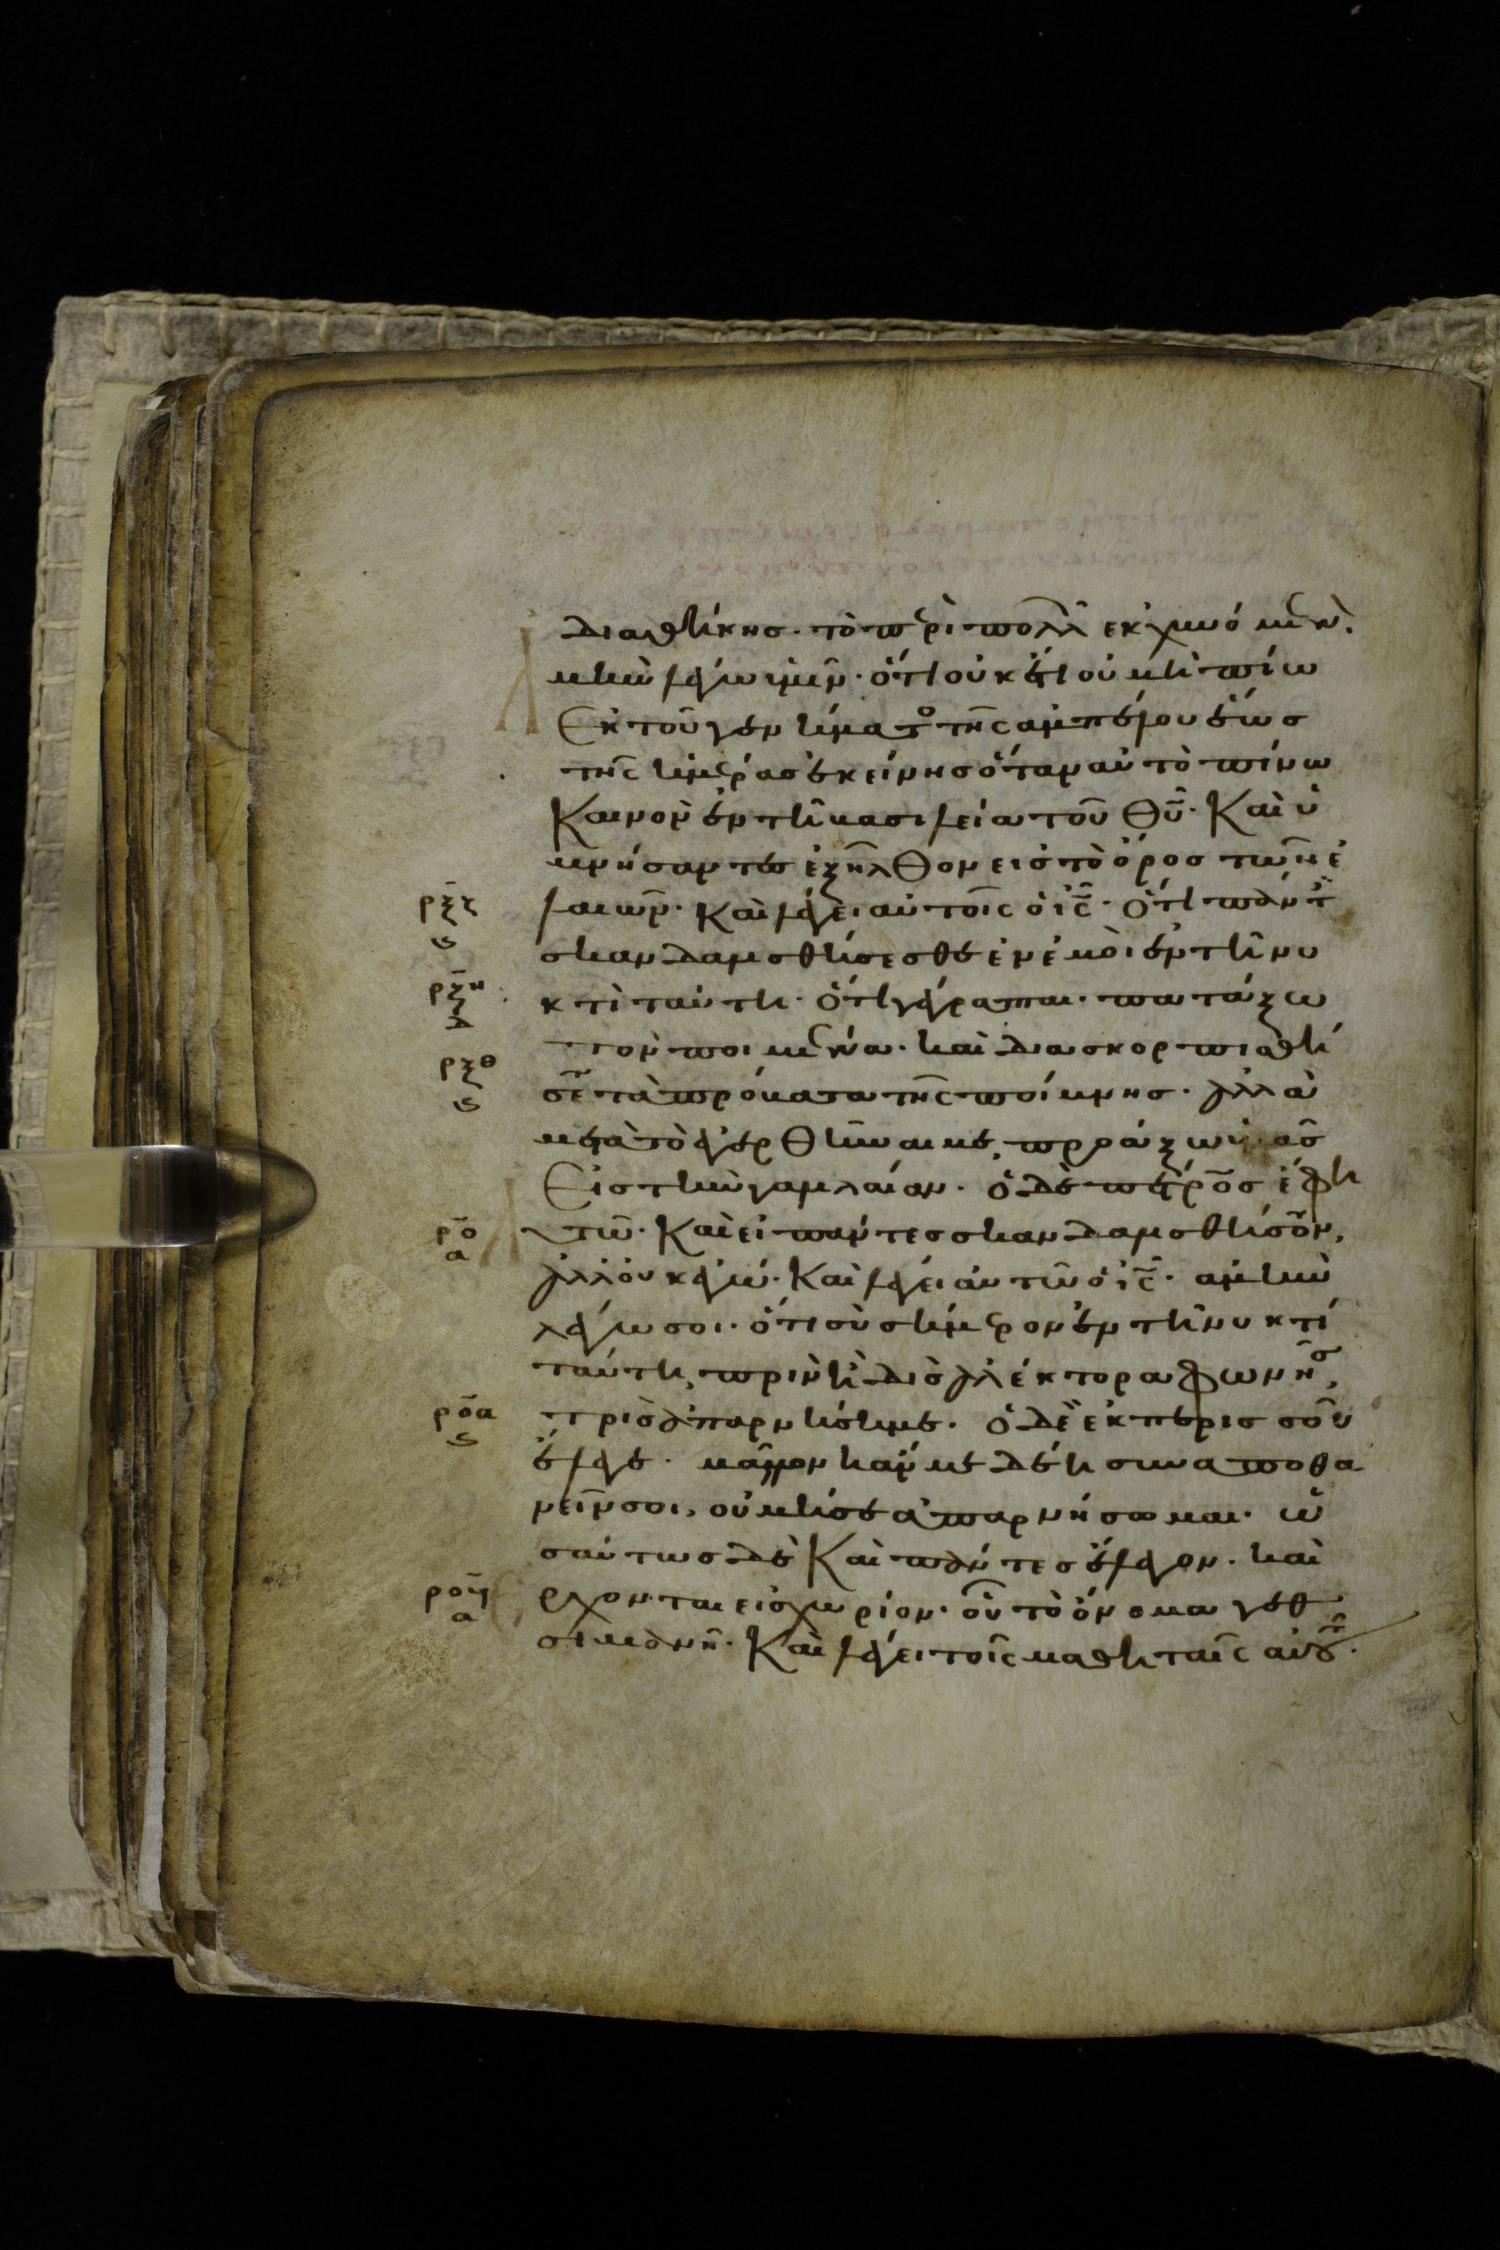 διαθήκης· τὸ περὶ πολλῶν ἐκχυνόμενον.
ἀμὴν λέγω ὑμῖν· ὅτι οὐκέτι οὐ μὴ πίω
ἐκ τοῦ γεννήματος τῆς ἀμπέλου ἕως
τῆς ἡμέρας ἐκείνης ὅταν αὐτὸ πίνω
Καινὸν ἐν τῆ βασιλεία τοῦ θυ̅· Καὶ ὑ
μνήσαντες ἐξῆλθον εἰς τὸ ὄρος τῶν ἐ
λαιῶν· Καὶ λέγει αὐτοῖς ὁ ις̅· ὅτι πάντες
ρξζ
ϛ
σκανδαλισθήσεσθε ἐν ἐμοὶ ἐν τῆ νυ
ρξη
δ
κτὶ ταύτη· ὅτι γέγραπται· πατάξω
τὸν ποιμένα· καὶ διασκορπισθή
ρξθ
ϛ
σεται τὰ πρόβατα τῆς ποίμνης· ἀλλὰ
μετὰ τὸ ἐγερθῆναι με, προάξω ὑμᾶς
Εἰς τὴν γαλιλαίαν· ὁ δὲ πέτρος ἔφη
ρο
α
αὐτῶ· Καὶ εἰ πάντες σκανδαλισθήσονται,
ἀλλ' οὐκ ἐγώ· Καὶ λέγει αὐτῶ ὁ ις̅· ἀμὴν
λέγω σοι· ὅτι σὺ σήμερον ἐν τῆ νυκτί
ταύτη, πρὶν ἢ δὶς ἀλέκτορα φωνῆσαι,
ροα
ϛ
τρὶς ἀπαρνήση με· ὁ δὲ ἐκπερισσοῦ
ἔλεγε· μᾶλλον κἄν με δέη συναποθα
νεῖν σοι, οὐ μή σε ἀπαρνήσωμαι· ὡ
σαύτως δὲ Καὶ πάντες ἔλεγον· καὶ
ρογ
α
ἔρχονται εἰς χωρίον· οὗ τὸ ὄνομα γεθ
σιμανῆ· Καὶ λέγει τοῖς μαθηταῖς αὐτοῦ·